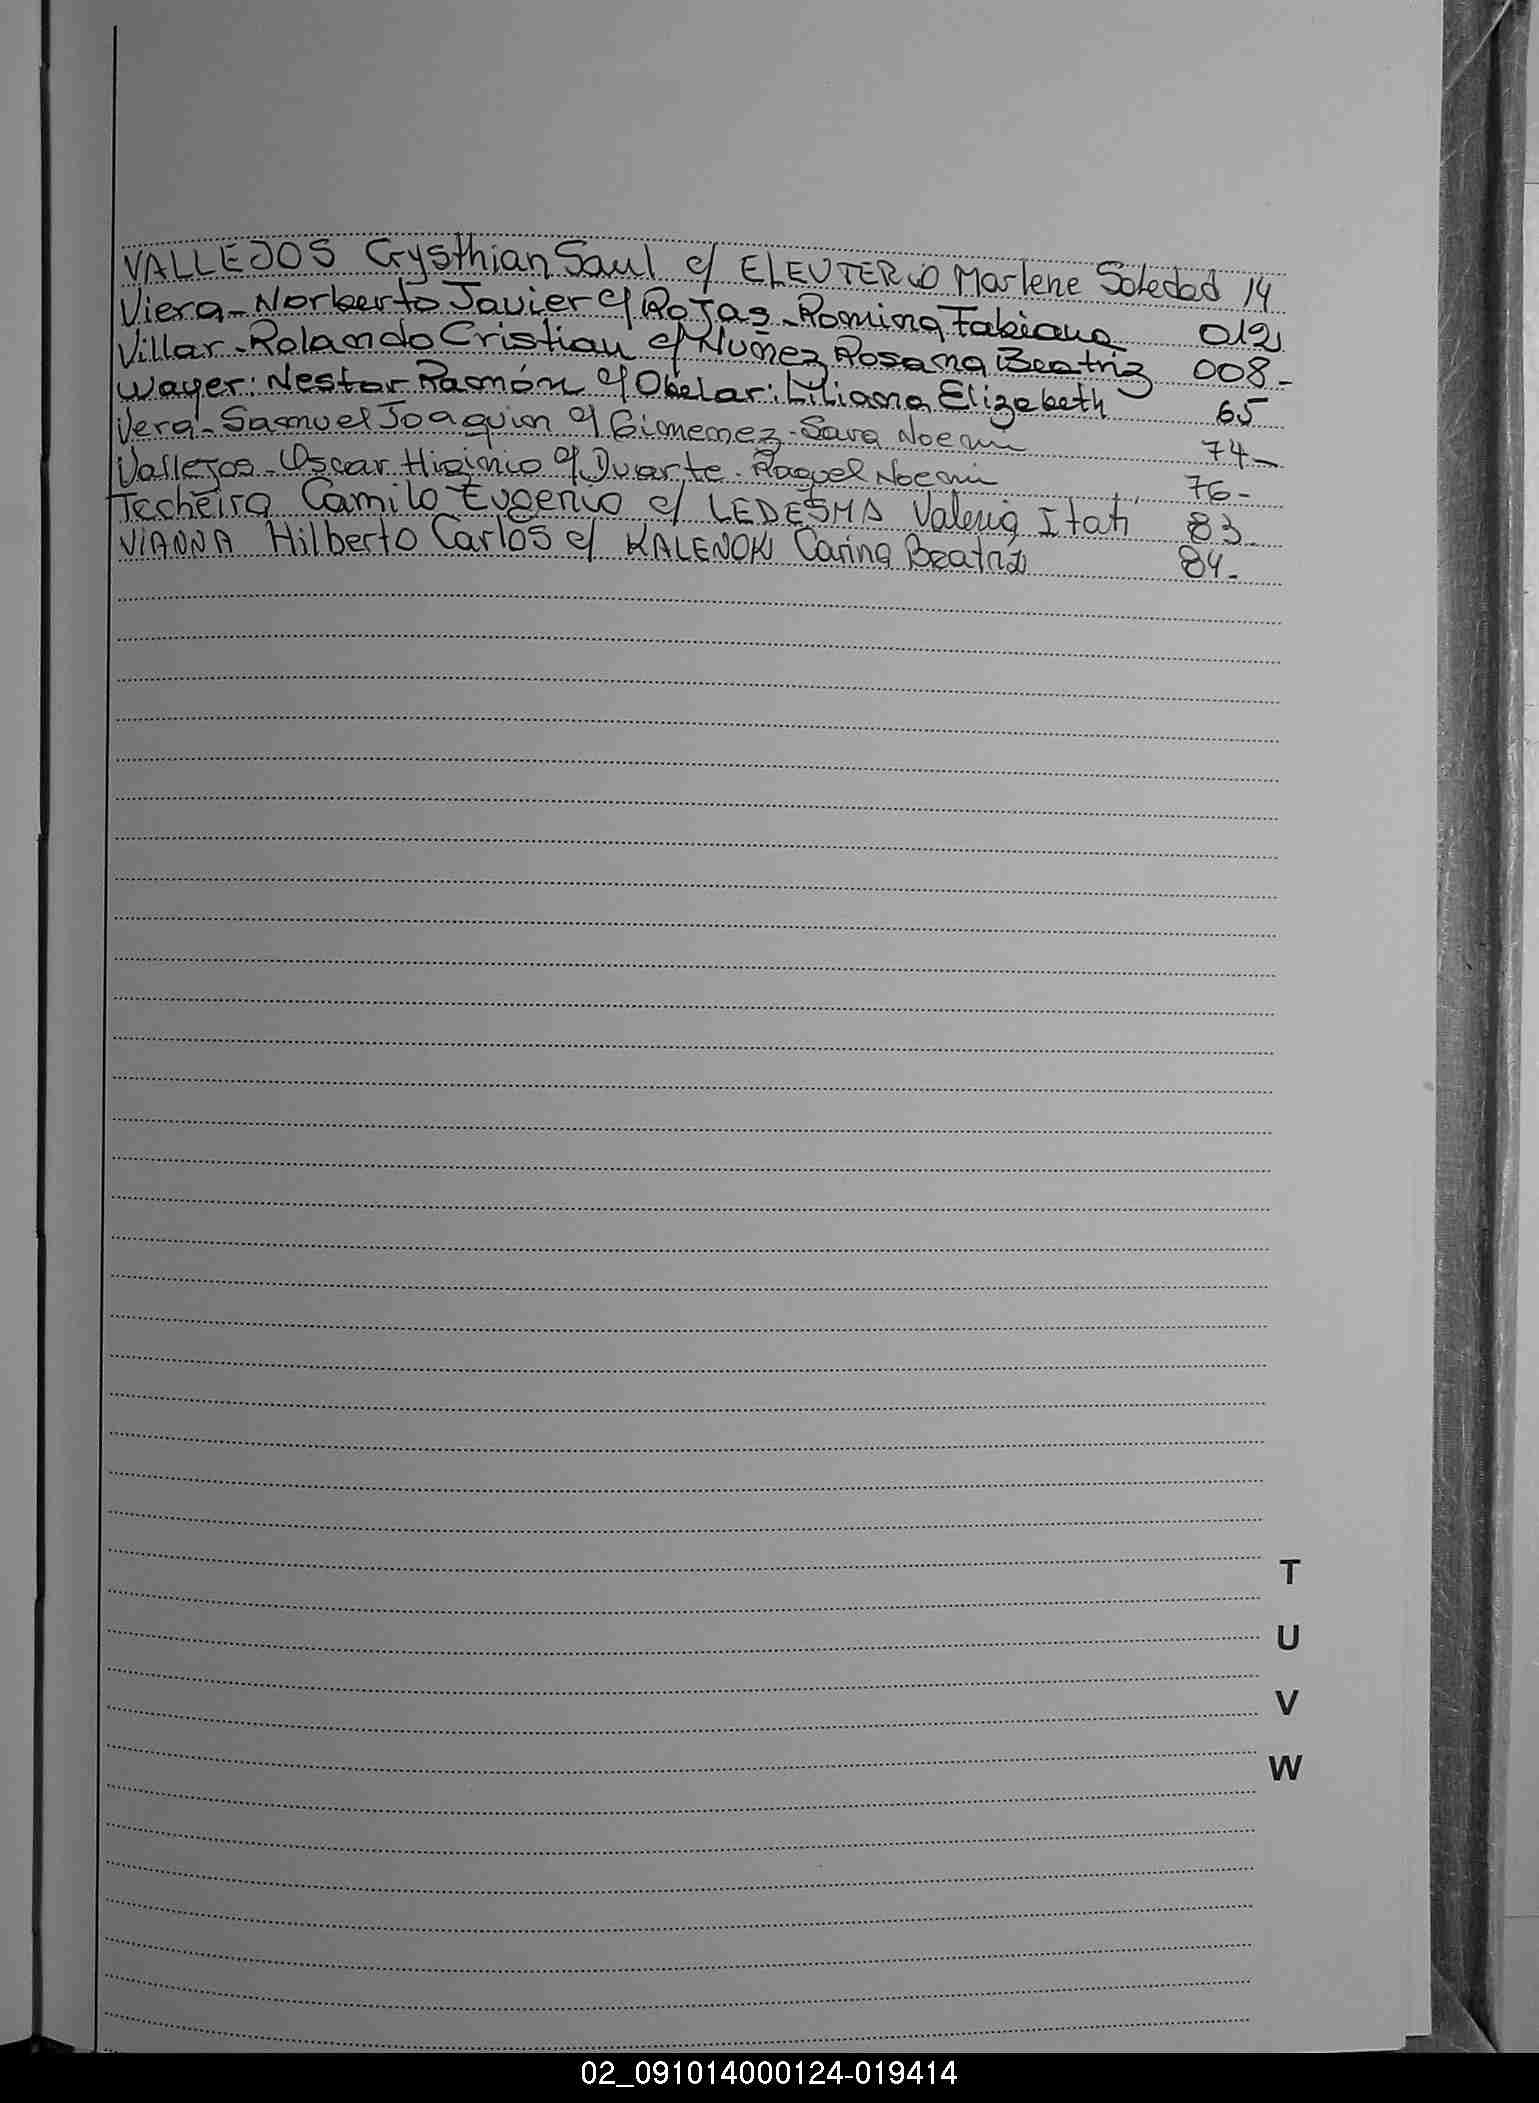 VALLEJOS Crysthian Saul c/ ELEUTERIO Marlene Soledad 14
Viera - Norberto Javier c/ Rojas - Romina Fabiana 012
Villar - Rolando Cristian c/ Nuñez Rosana Beatriz 008-
Wayer: Nestor Ramón c/ Obelar: Liliana Elizabeth 65
Vera - Samuel Joaquin c/ Gimenez - Sara Noemi 74-
Vallejos - Oscar Higinio c/ Duarte - Raquel Noemi 76-
Techeira Camilo Eugenio c/ LEDESMA Valeria Itatí 83-
VIANNA Hilberto Carlos c/ KALENOKI Carina Beatriz 84-
T
U
V
W
02_091014000124-019414